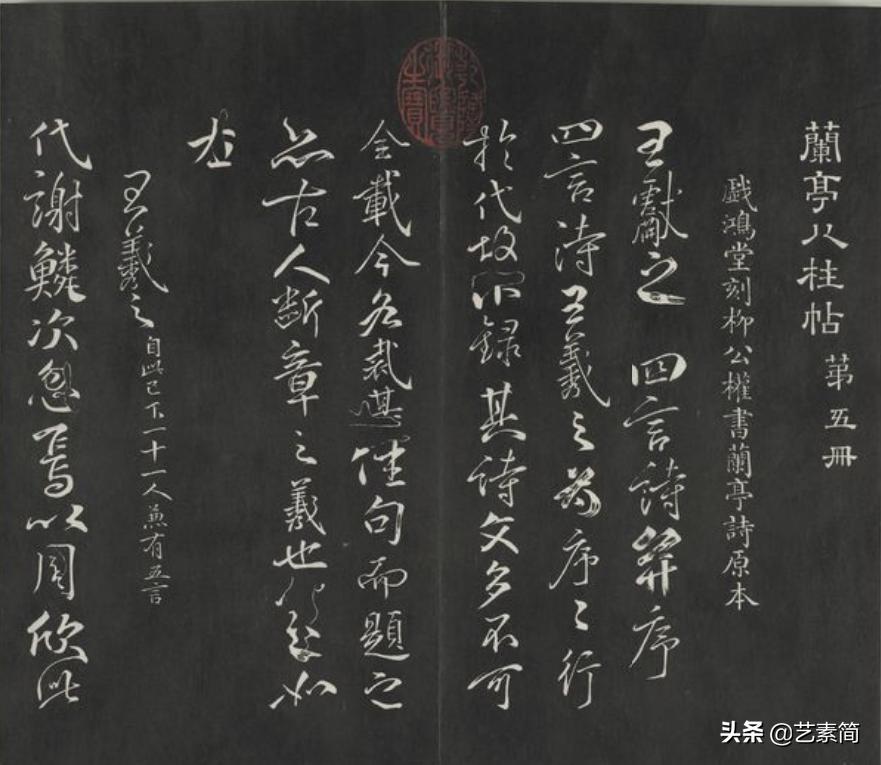 蘭亭八柱帖 第五冊
戲鴻堂刻柳公權書蘭亭詩原本
王獻之 四言詩并序
四言詩王羲之為序〻行
於代故不錄其詩文多不可
全載今各裁其佳句而題之
亦古人断章之義也 如
左
王羲之 自此已下一十一人兼有五言
代謝鱗次忽焉以周欣此
乾隆御覽之寶
头条 @艺素简